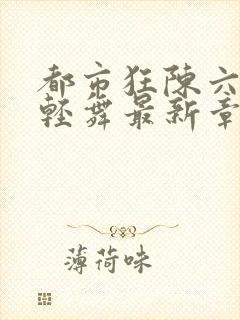 都市狂陈六
轻舞最新章
薄荷味